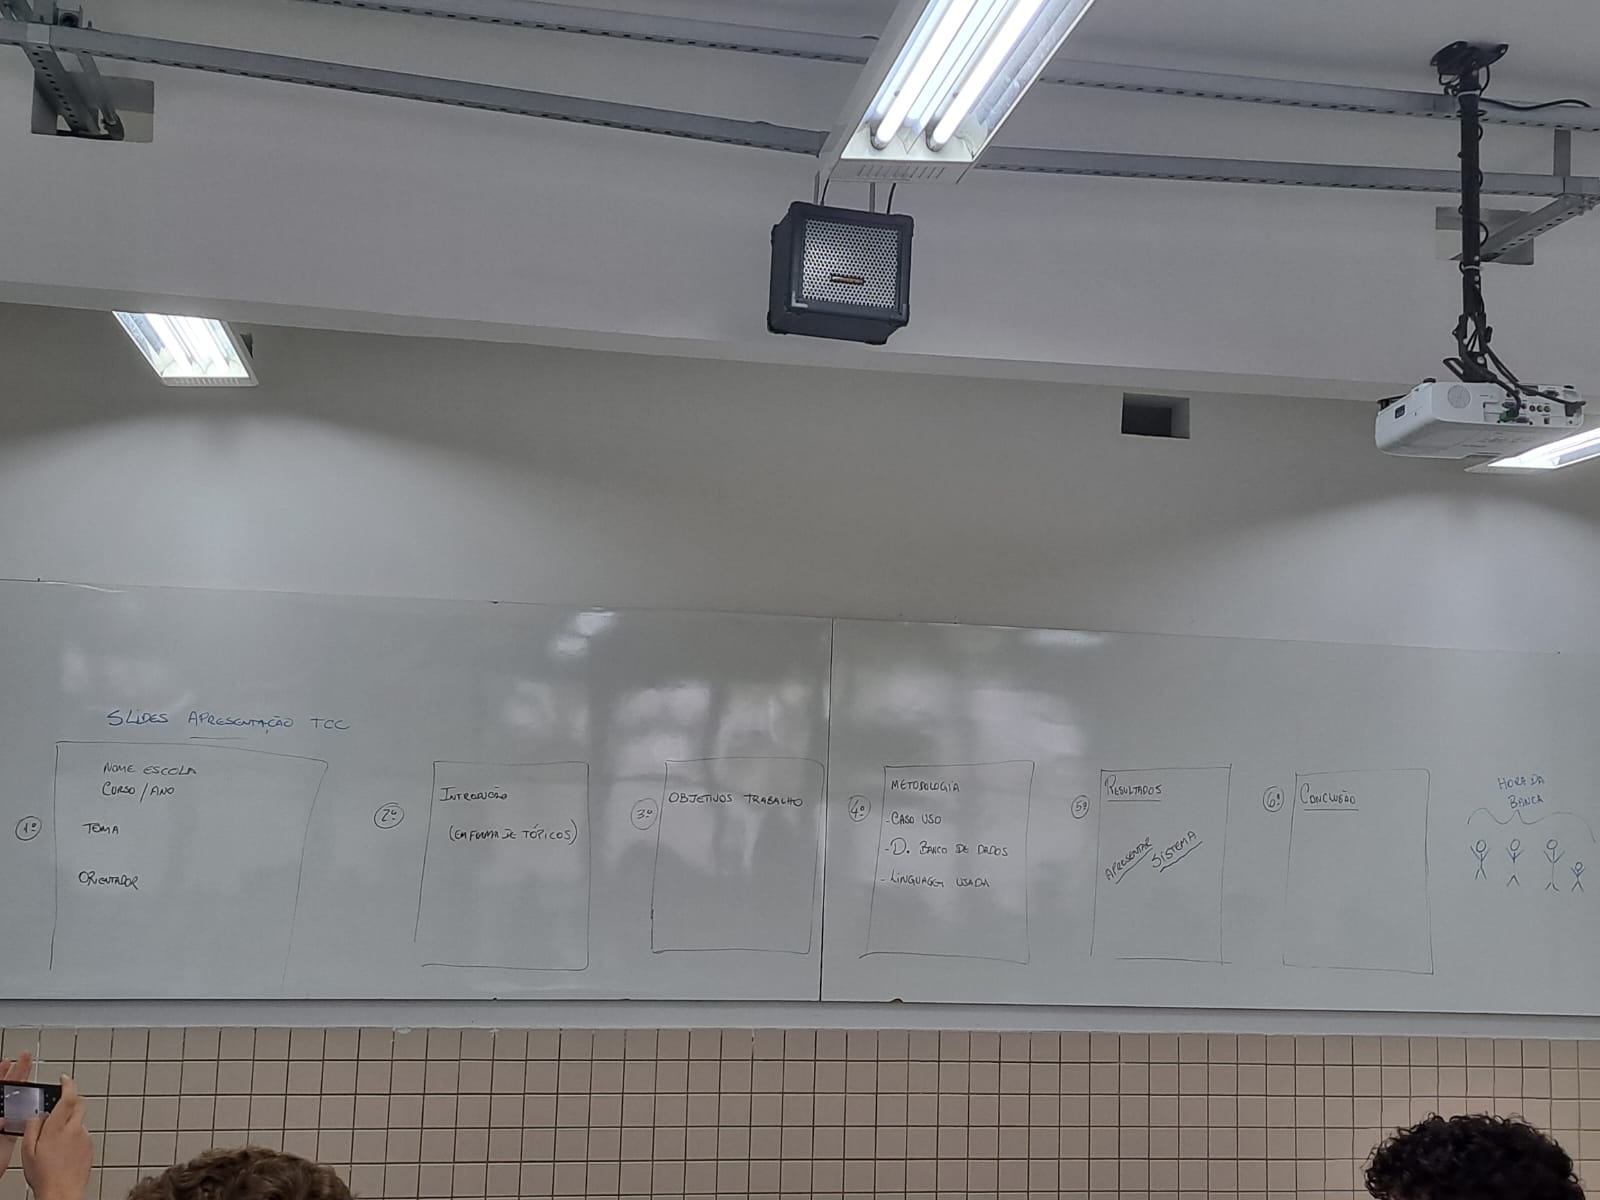 SLIDES APRESENTAÇÃO TCC
1º
NOME ESCOLA
CURSO / ANO
TEMA
ORIENTADOR
2º
INTRODUÇÃO
(EM FORMA DE TÓPICOS)
3º
OBJETIVOS TRABALHO
4º
METODOLOGIA
- CASO USO
- D. BANCO DE DADOS
- LINGUAGEM USADA
5º
RESULTADOS
APRESENTAR SISTEMA
6º
CONCLUSÃO
HORA DA
BANCA